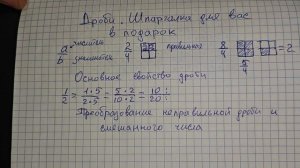 Дроби. Шпаргалка для вас
в подарок
a числитель 2/4 правильная 8/4 = 2
b знаменатель 5/4
Основное свойство дроби
1/2 = 1·5/2·5 = 5·2/10·2 = 10/20
Преобразование неправильной дроби и
смешанного числа